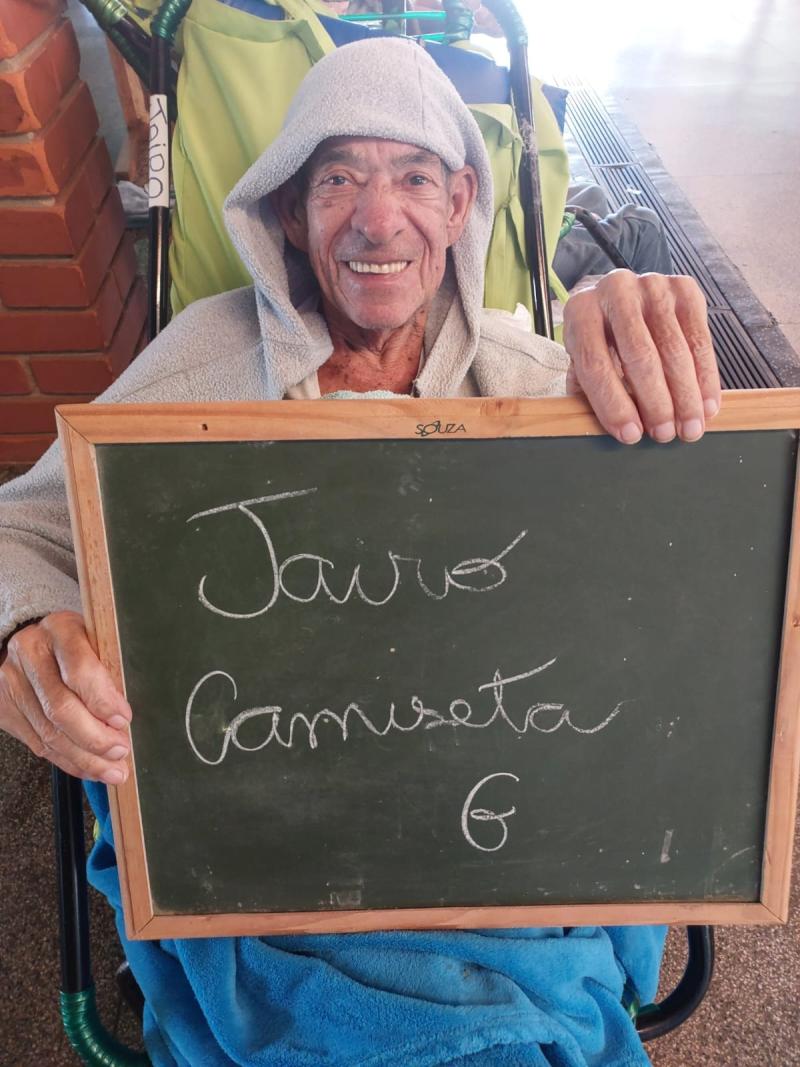 JAIRO
SOUZA
Jairo
Camiseta
G